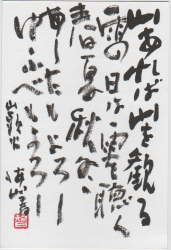 山あれば山を観る
雨の日は雨を聴く
春夏秋冬
あしたもよろし
ゆふべもよろし
山頭火